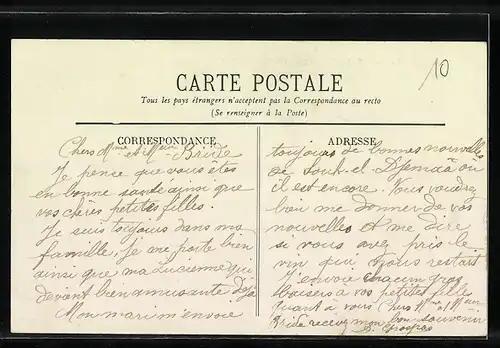 10
CARTE POSTALE
Tous les pays étrangers n'acceptent pas la Correspondance au recto
(Se renseigner à la Poste)
CORRESPONDANCE
Chers Mme et Meur
Je pense que vous êtes
en bonne santé ainsi que
vos chères petites filles.
Je suis toujours dans ma
famille, je me porte bien
ainsi que ma Lucienne qui
devient bien amusante déjà
Mon mari m'envoie
ADRESSE
toujours de bonnes nouvelles
de Souk-el-Djemaâ où
il est encore. Vous voudrez
bien me donner de vos
nouvelles et me dire
si vous avez pris le
vin qui vous restait
J'envoie chacun gros
baisers à vos petites filles
Quant à vous Chers Mme et Meur
recevez mon bon souvenir